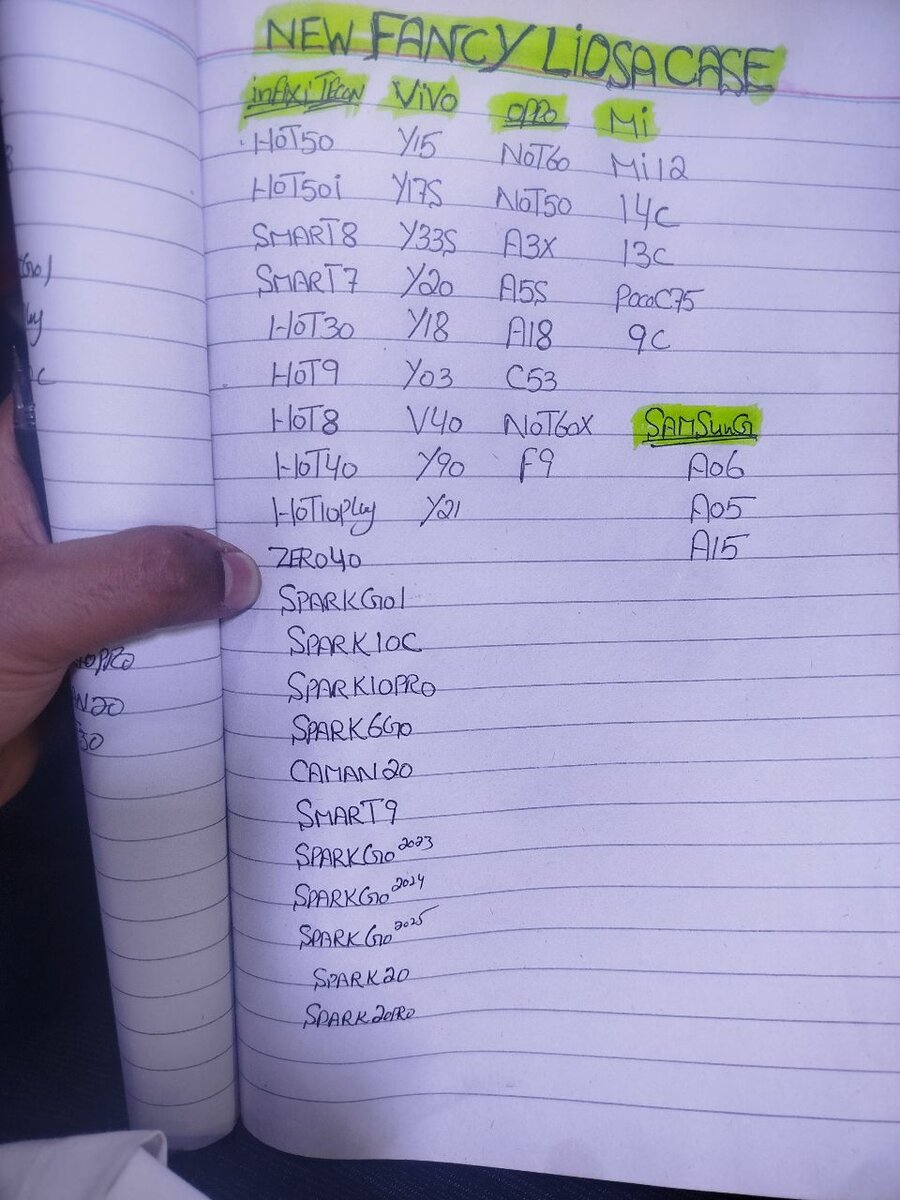 NEW FANCY LiDSA CASE
infixi TECON ViVo oppo Mi
HOT50 Y15 NOT60 Mi12
HOT50i Y17S NOT50 14C
SMART8 Y33S A3X 13C
SMART7 Y20 A5S POCOC75
HOT30 Y18 A18 9C
HOT9 Y03 C53
HOT8 V40 NOT60X SAMSunG
HOT40 Y90 F9 A06
HOT10Play Y21 A05
ZERO40 A15
SPARKGO1
SPARK10C
SPARK10PRO
SPARK6GO
CAMAN20
SMART9
SPARKGO2023
SPARKGO2024
SPARKGO2025
SPARK20
SPARK20PRO